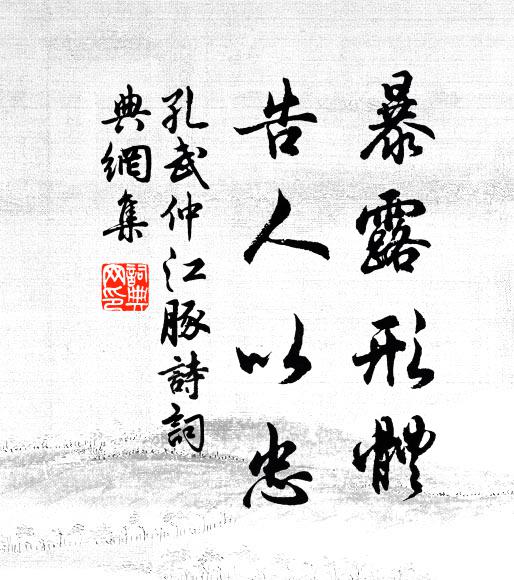 暴露形體
告人以忠
孔武仲江豚詩詞
典網集
詞典网印